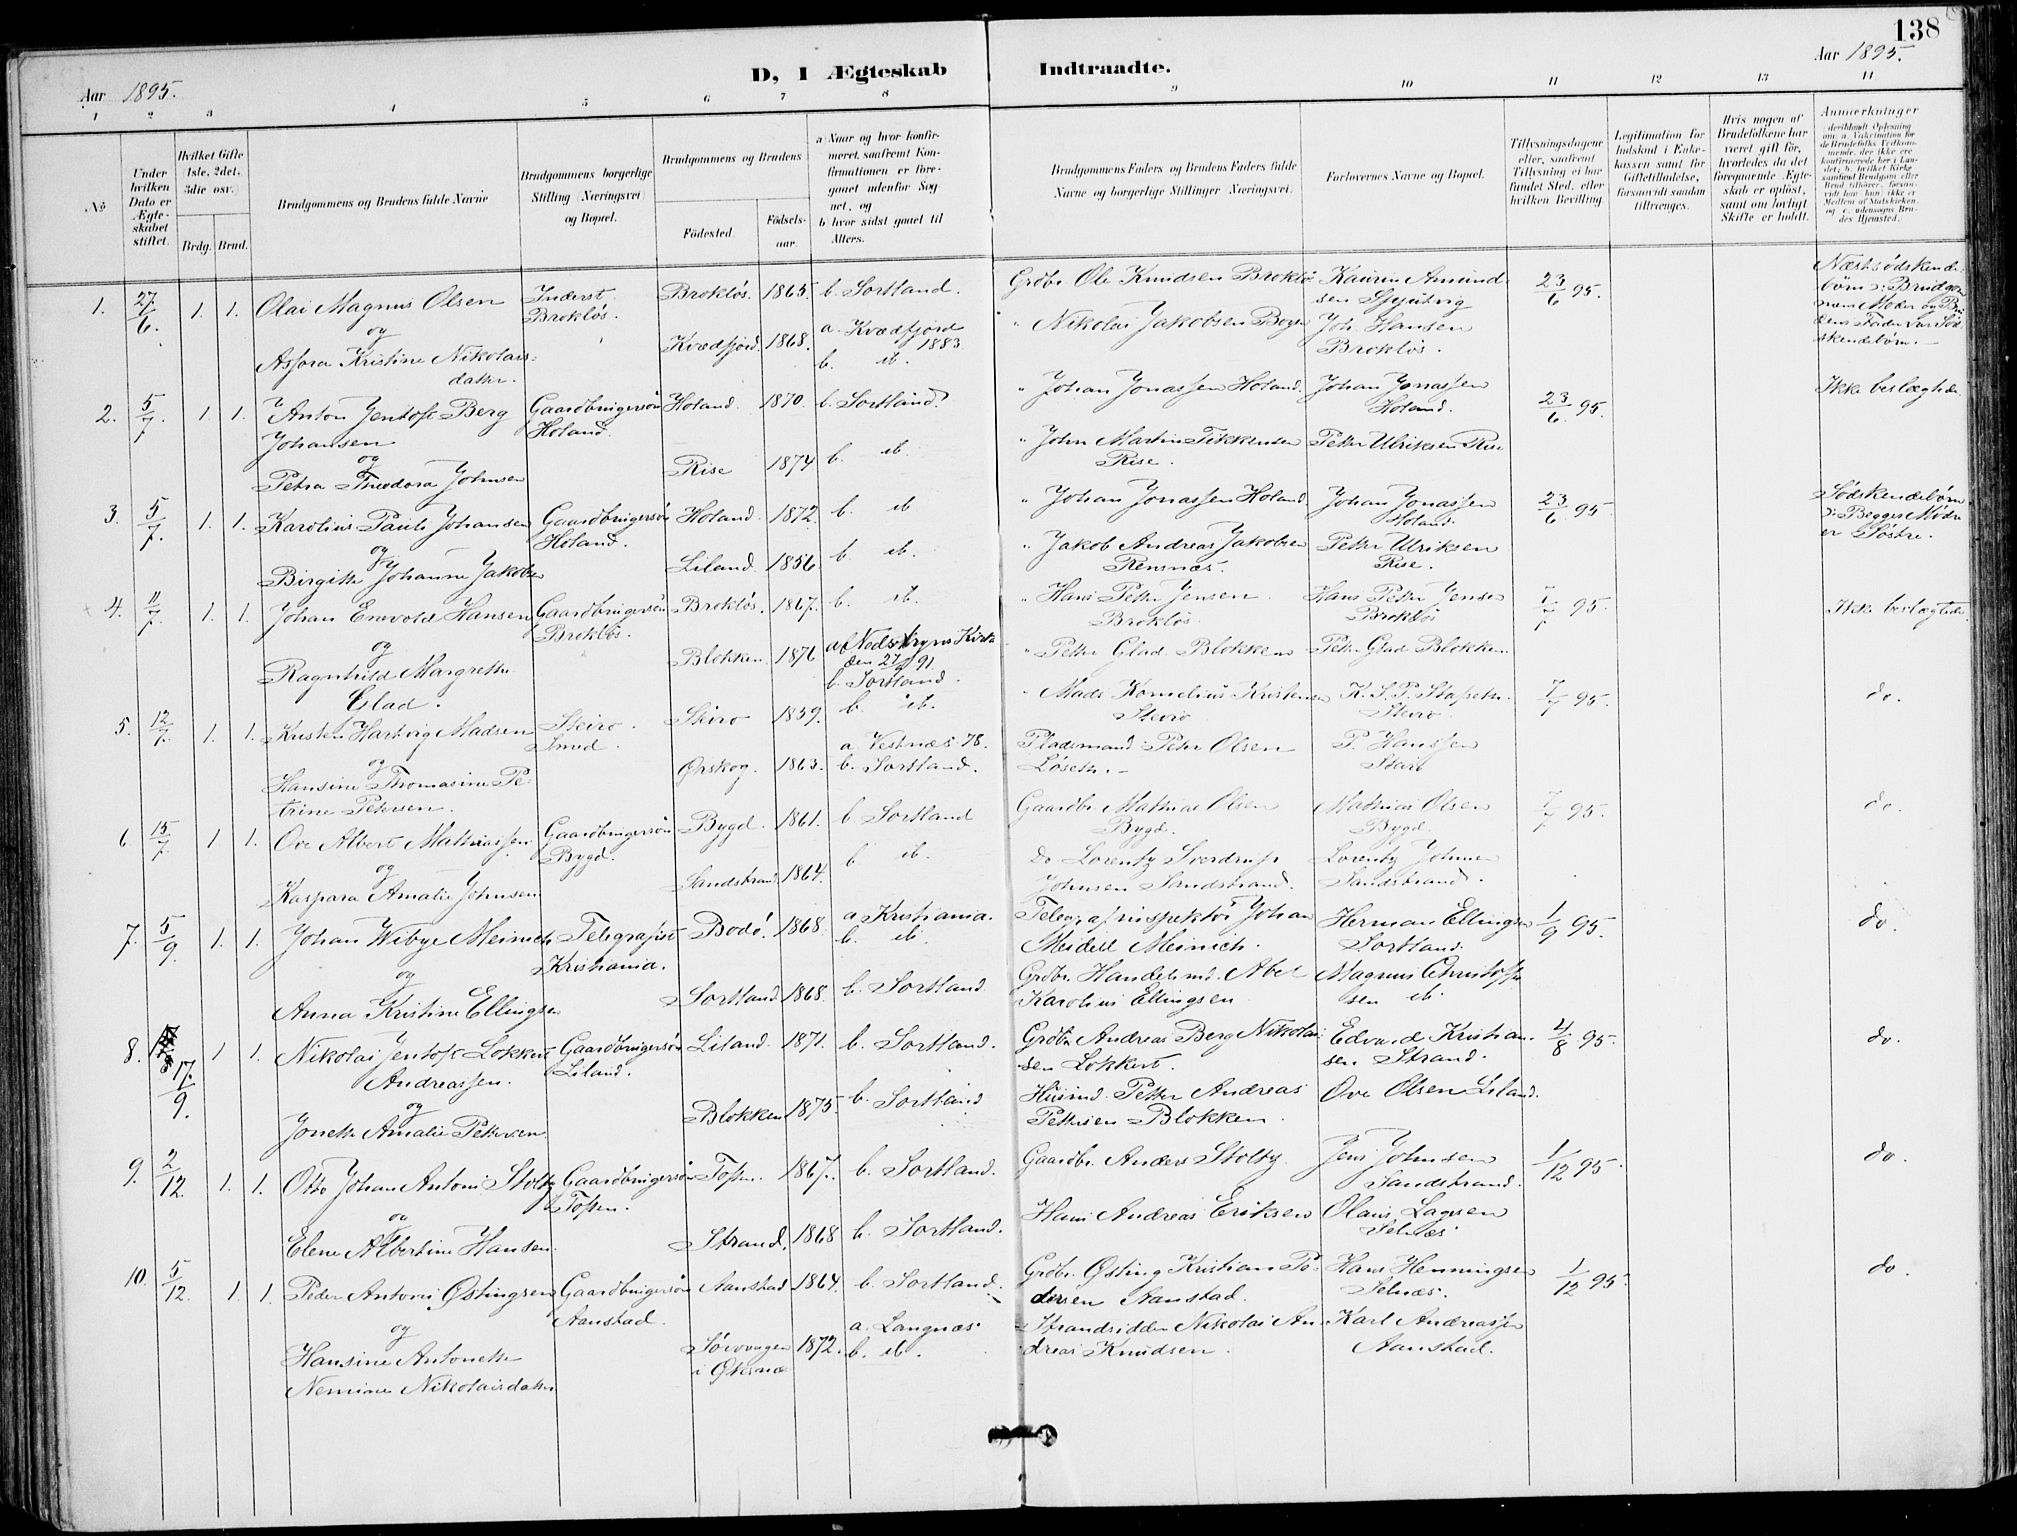 138
D, I Ægteskab Indtraadte.
Aar 1895.
Aar 1895.
1 2 3 4 5 6 7 8 9 10 11 12 13 14
No
Under hvilken Dato er Ægteskabet stiftet.
Hvilket Gifte 1ste, 2det, 3die osv.
Brdg. Brud.
Brudgommens og Brudens fulde Navne
Brudgommens borgerlige Stilling (Næringsvei) og Bopæl.
Brudgommens og Brudens
Födested.
Födsels-aar.
a) Naar og hvor konfirmeret, saafremt Konfirmationen er foregaaet udenfor Sognet, og
b) hvor sidst gaaet til Alters.
Brudgommens Faders og Brudens Faders fulde Navne og borgerlige Stillinger (Næringsvei).
Forlovernes Navne og Bopæl.
Tillysningsdagene eller, saafremt Tillysning ei har fundet Sted, efter hvilken Bevilling.
Legitimation for Indskud i Enkekassen samt for Giftetilladelse, forsaavidt saadan tiltrænges.
Hvis nogen af Brudefolkene har været gift för, hvorledes da det foregaaende Ægteskab er oplöst, samt om lovligt Skifte er holdt.
Anmærkninger
1. 27/6. 1. 1. Olai Magnus Olsen
og
Assora Kristine Nikolais-
datter.
Inderst
Brokløs.
Brokløs. 1865. b. Sortland.
Kvædfjord. 1868. a. Kvædfjord 1883
b. ib.
Grdbr. Ole Knudsen Brokløs
" Nikolai Jakobsen Bogen
Kaurin Amund-
sen
Joh. Hansen
Brokløs.
23/6 95.
Næstsødskende-
børn: Brudgom-
mens Moder og Bru-
dens Fader var Sød-
skendebørn.
2. 5/7. 1. 1. Anton Jentoft Berg
Johansen
og
Petra Theodora Johnsen
Gaardbrugersøn
Holand.
Holand. 1870. b. Sortland.
Rise 1874 b. ib.
" Johan Jonassen Holand.
" John Martin Tikkensen
Rise.
Johan Jonassen
Holand.
Petter Ulriksen Rise
23/6 95.
Ikke beslægtede
3. 5/7. 1. 1. Karolius Pauli Johansen
og
Birgitte Johanne Jakobsen
Gaardbrugersøn
Holand.
Holand. 1872. b. ib
Liland. 1856 b. ib.
" Johan Jonassen Holand
" Jakob Andreas Jakobsen
Rensnæs.
Johan Jonassen
Holand.
Petter Ulriksen
Rise.
23/6 95.
Sødskendebørn
: Begges Mødre
er Søstre.
4. 11/7. 1. 1. Johan Envold Hansen
og
Ragnhild Margrethe
Glad.
Gaardbrugersøn
Brokløs.
Brokløs. 1867. b. ib.
Blokken. 1876 Kirke
b. Sortland.
" Hans Petter Jensen.
Brokløs.
" Petter Glad Blokken
Hans Petter Jensen
Brokløs
Petter Glad Blokken.
7/7 95.
Ikke beslægtede
5. 12/7. 1. 1. Kristen Hartvig Madsen
og
Hansine Thomasine Pe-
trine Petersen.
Skiro.
Smed.
Skiro 1859. b. ib.
Ørskog. 1863. a. Vestnæs 78.
b. Sortland.
" Mads Kornelius Kristensen
Skiro
Pladsmand Peter Olsen
Løseth.
P. Hanssen
7/7 95.
do.
6 15/7. 1 1. Ove Albert Mathiassen
og
Kaspara Amalie Johnsen
Gaardbrugersøn
Bygd.
Bygd. 1861. b. Sortland
Sandstrand 1864. b ib.
Gaardbr. Mathias Olsen
Bygd.
Do Lorentz Sverdrup
Johnsen Sandstrand.
Mathias Olsen
Bygd.
Lorentz Johnsen
Sandstrand.
7/7 95.
do.
7. 5/9. 1. 1. Johan Wibye Meinich
og
Anna Kristine Ellingsen
Telegrafist
Kristiania.
Bodø. 1868. a Kristiania.
b. ib.
Sortland 1868. b. Sortland.
Telegrafinspektør Johan
Meidell Meinich.
Grdbr. Handelsmd. Abel
Karolius Ellingsen
Herman Ellingsen
Sortland.
Magnus Christoffer-
sen ib.
1/9 95.
do.
8. 17./9. 1 1. Nikolai Jentoft Lokkert
Andreassen.
og
Jonette Amalie Petersen.
Gaardbrugersøn
Liland.
Liland. 1871. b. Sortland.
Blokken 1875. b. Sortland
Grdbr Andreas Berg Nikolai-
sen Lokkert.
Husmd. Petter Andreas
Pettersen Blokken.
Edvard Kristian-
sen Strand.
Ove Olsen Liland.
4/8 95.
do.
9. 2/12. 1. 1. Otto Johan Antoni Stoltz
og
Elene Albertine Hansen.
Gaardbrugersøn
Toften.
Toften. 1867. b. Sortland.
Strand. 1868 b. Sortland.
Gaardbr. Anders Stoltz
Hans Andreas Eriksen
Jens Johnsen
Sandstrand.
Olaus Lagesen
Selnæs.
1/12 95.
do.
10. 5/12. 1. 1. Peder Antoni Østingsen
og
Hansine Antonette
Nemine Nikolaisdatter
Gaardbrugersøn
Aanstad.
Aanstad 1864. b. Sortland.
Sørvaagen
i Øksnæs 1872. a. Langnæs.
b. ib.
Grdbr. Østing Kristian Pe-
dersen Aanstad.
Strandsidder Nikolai An-
dreas Knudsen.
Hans Henningsen
Selnæs.
Karl Andreassen
Aanstad.
1/12 95.
do.